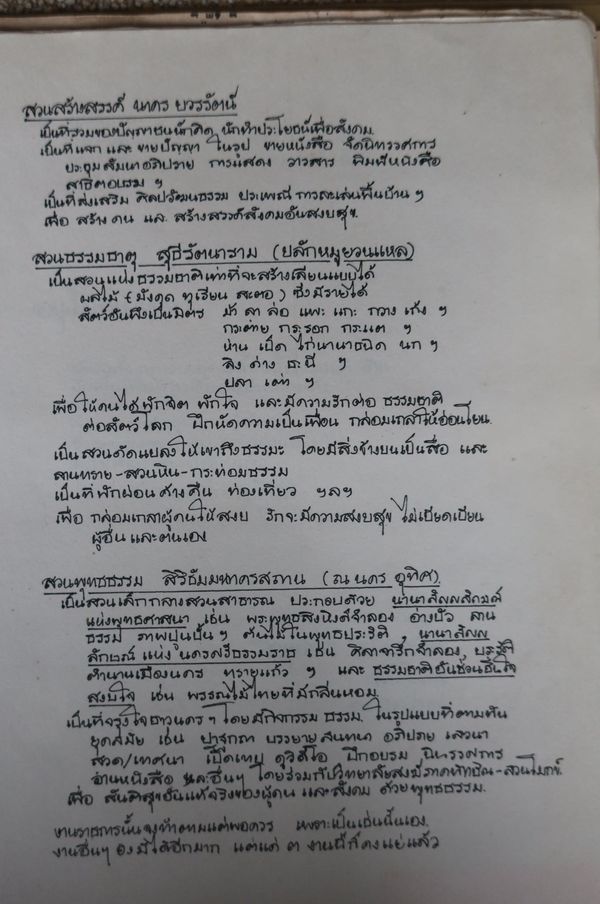 สวนสร้างสรรค์ นาคร บวรรัตน์
เป็นที่รวมของปัญญาชนนักคิด นักทำประโยชน์เพื่อสังคม.
เป็นที่แจก และ ขายปัญญา ในรูป ขายหนังสือ จัดนิทรรศการ
ประชุมสัมนาอภิปราย การแสดง วารสาร พิมพ์หนังสือ
สาธิตอบรม ฯ
เป็นที่ส่งเสริม ศิลปวัฒนธรรม ประเพณี การละเล่นพื้นบ้าน ฯ
เพื่อ สร้าง คน และ สร้างสรรค์สังคมอันสงบสุข.
สวนธรรมธาตุ สุธีรัตนาราม (ปลักหมูยวนเหล)
เป็นสวนแห่งธรรมชาติเท่าที่จะสร้างเลียนแบบได้
ผลไม้ (มังคุด ทุเรียน สะตอ) ซึ่งมีรายได้
สัตว์อันพึงเป็นมิตร ม้า ลา ล่อ แพะ แกะ กวาง เก้ง ฯ
กระต่าย กระรอก กระแต ฯ
ห่าน เป็ด ไก่นานาชนิด นก ฯ
ลิง ค่าง ชะนี ฯ
ปลา เต่า ฯ
เพื่อ ให้คนได้พักจิต พักใจ และมีความรักต่อ ธรรมชาติ
ต่อสัตว์โลก ฝึกหัดความเป็นเพื่อน กล่อมเกลาให้อ่อนโยน.
เป็นสวนดัดแปลงให้เขาถึงธรรมะ โดยมีสิ่งข้างบนเป็นสื่อ และ
ลานทราย-สวนหิน-กระท่อมธรรม
เป็นที่พักผ่อน ค้างคืน ท่องเที่ยว ฯลฯ
เพื่อ กล่อมเกลาผู้คนให้สงบ รักจะมีความสงบสุข ไม่เบียดเบียน
ผู้อื่นและตนเอง
สวนพุทธธรรม สิริธัมมนาครสถาน (ณ นคร อุทิศ).
เป็นสวนเล็กกลางสวนสาธารณ ประกอบด้วย นานาสัญญลักษณ์
แห่งพุทธศาสนา เช่น พระพุทธสิงหิงค์จำลอง อ่างบัว ลาน
ธรรม ภาพปูนปั้นฯ ต้นไม้ในพุทธประวัติ , นานาสัญญ
ลักษณ์ แห่ง นครศรีธรรมราช เช่น ศิลาจารึกจำลอง, ประวัติ
ตำนานเมืองนคร ทรายแก้ว ฯ และ ธรรมชาติอันชวนชื่นใจ
สงบใจ เช่น พรรณไม้ไทยที่มีกลิ่นหอม.
เป็นที่จูงใจชาวนครฯ โดยมีกิจกรรม ธรรม. ในรูปแบบที่ตามทัน
ยุคสมัย เช่น ปาฐกถา บรรยาย สนทนา อภิปราย เสวนา
สวด/เทศนา เปิดเทป ดูวิดีโอ ฝึกอบรม นิทรรศการ
อ่านหนังสือ และอื่นๆ โดยร่วมกับวิทยาลัยสงฆ์ภาคทักษิณ-สวนโมกข์.
เพื่อ สันติสุขอันแท้จริงของผู้คน และสังคม ด้วยพุทธธรรม.
งานราชการนั้น จะทำตามแต่พอควร เพราะเป็นเช่นนั้นเอง.
งานอื่นๆ คงมีได้อีกมาก แต่แค่ ๓ งานนี้ก็คงแย่แล้ว